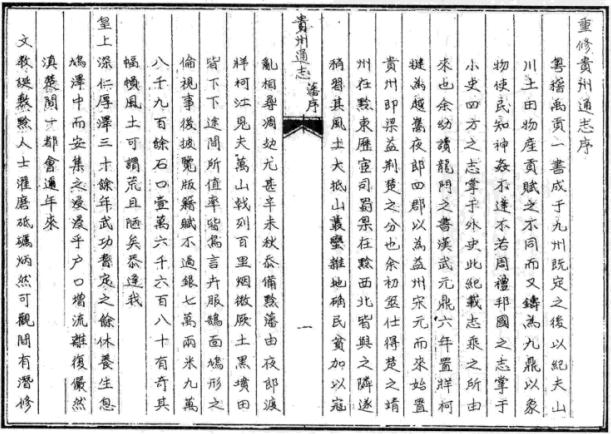 重修貴州通志序
粵稽禹貢一書成于九州既定之後以紀夫山
川土田物產貢賦之不同而又鑄為九鼎以象
物使民知神姦不逢不若周禮邦國之志掌于
小史四方之志掌于外史此紀載志乘之所由
來也余幼讀龍門之書漢武元鼎六年置牂柯
越為越嶲夜郎四郡以為益州宋元而來始置
貴州即梁益荆楚之分也余初筮仕得楚之靖
州在黔東歷宦司蜀臬在黔西北皆與之隣遂
稍習其風土大抵山叢蠻雜地硗民貧加以寇
貴州通志 藩序
一
亂相尋凋攰尤甚辛未秋忝備黔藩由夜郎渡
牂柯江見夫萬山戟列百里烟微厥土黑墳田
皆下下途間所值率皆鴃言卉服鵠面鳩形之
倫視事後披覽版籍賦不過銀七萬兩米九萬
八千九百餘石口壹萬六千六百八十有奇其
幅幀風土可謂荒且陋矣恭逢我
皇上深仁厚澤三十餘年武功耆定之餘休養生息
鳩澤中而安集之浸浸乎户口增流離復儼然
滇楚間一都會邇年來
文教誕敷黔人士濯磨砥礪炳然可觀間有潛修